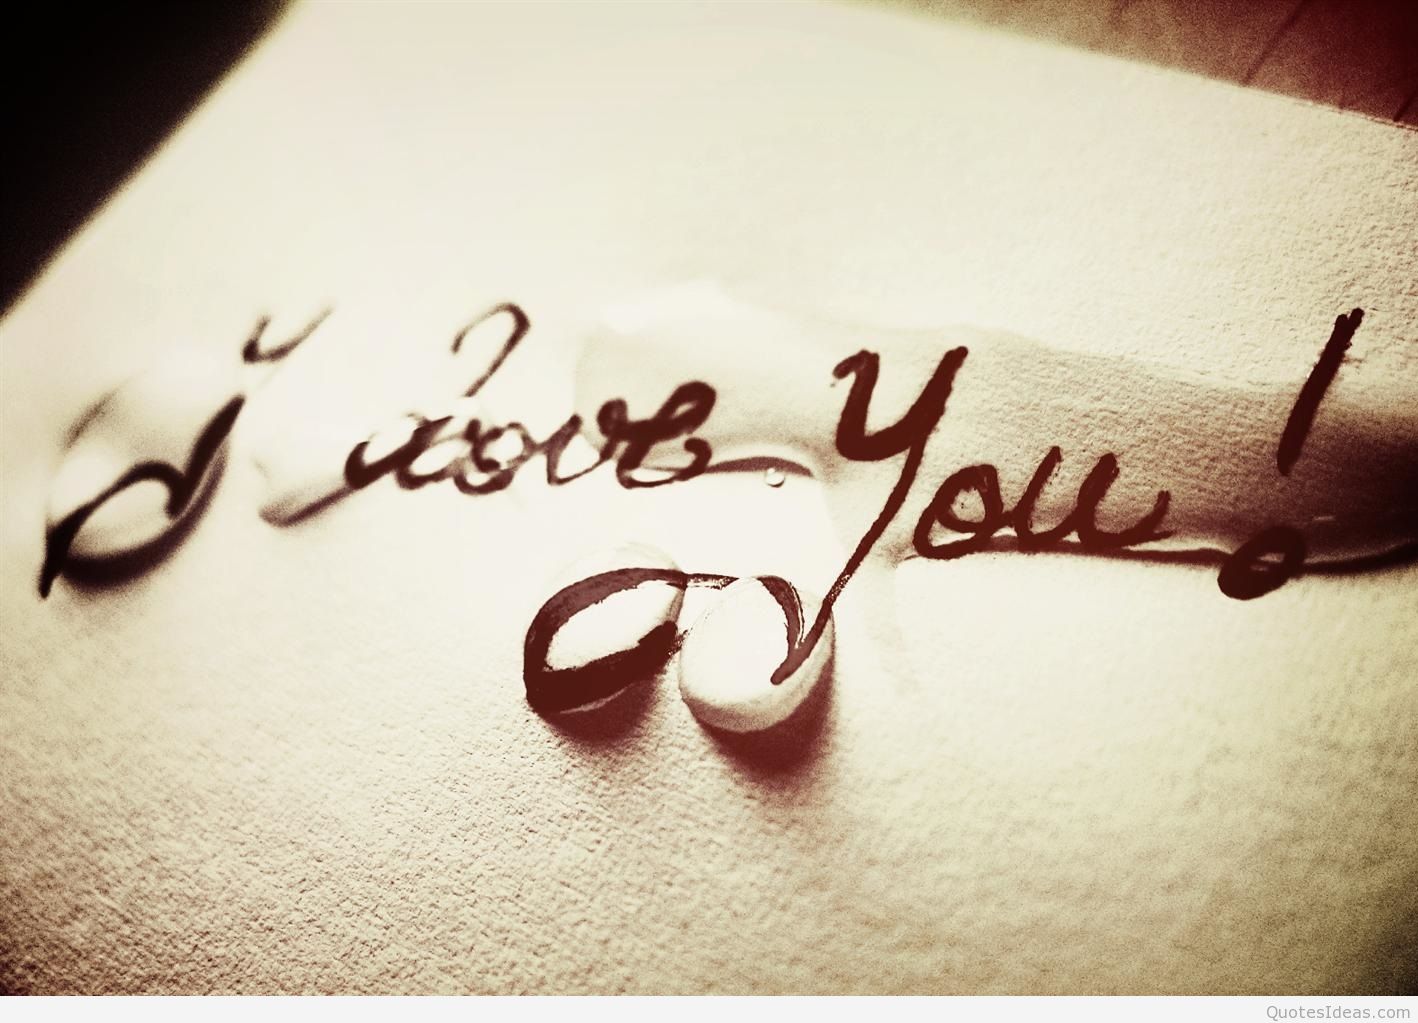 I love you!
QuotesIdeas.com